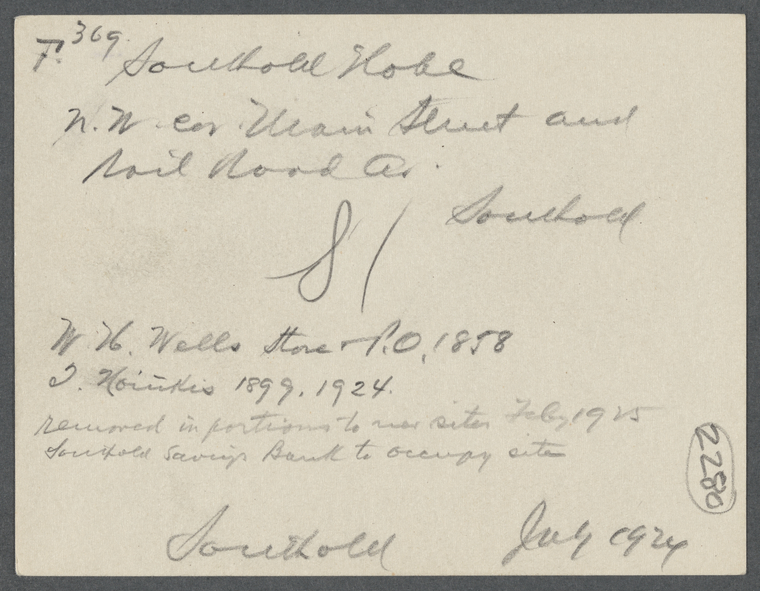 F. 369.
Southold Hotel
N. W. cor. Main Street and
Rail Road Av.
Southold
81
W. H. Wells Store & P.O. 1858
1899, 1924.
removed in portions to new sites Feby 1925
Southold Savings Bank to occupy site
2280
Southold July 1924